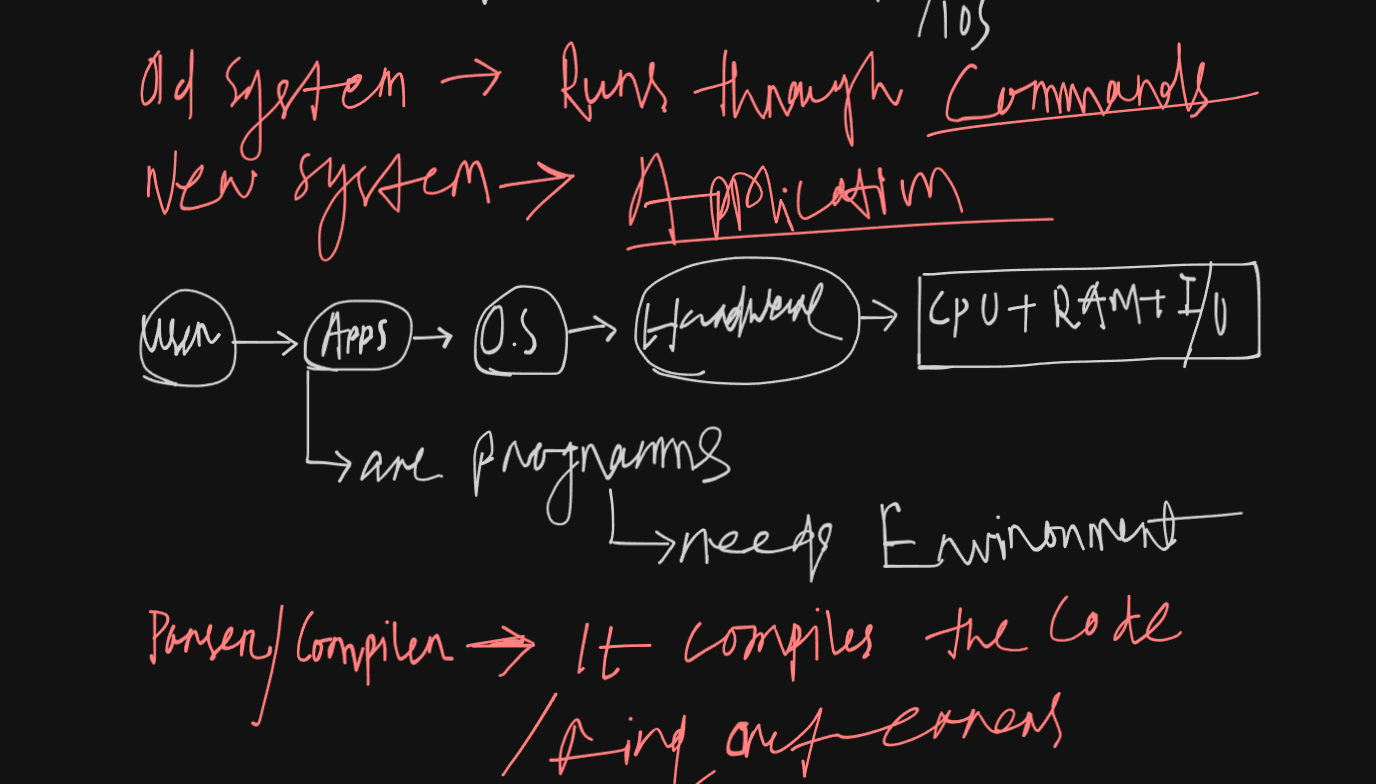 /ios
Old system → Runs through Commands
New system → Application
User → Apps → O.S → Hardware → CPU + RAM + I/O
are programms
needs Environment
Parser/Compiler → It compiles the Code
/find out errors